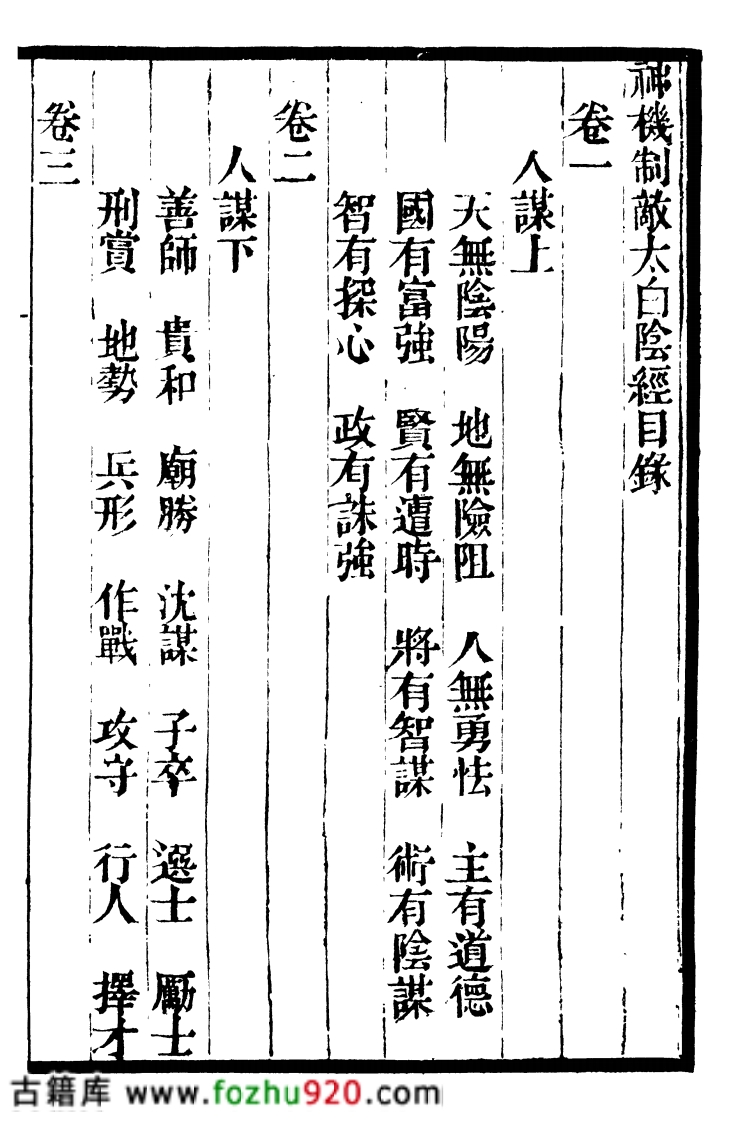 神機制敵太白陰經目錄
卷一
人謀上
天無陰陽 地無險阻 人無勇怯 主有道德
國有富強 賢有遭時 將有智謀 術有陰謀
智有探心 政有誅強
卷二
人謀下
善師 貴和 廟勝 沈謀 子卒 選士 勵士
刑賞 地勢 兵形 作戰 攻守 行人 擇才
卷三
古籍库 www.fozhu920.com